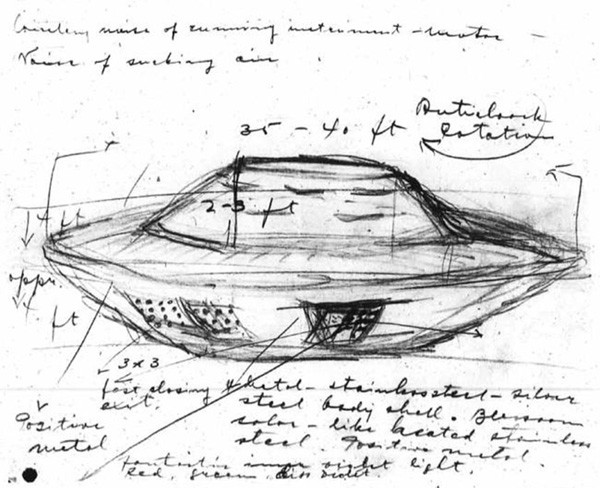 noise of running instrument - motor -
Noise of sucking air
Anticlock
rotation
35 - 40 ft
2 - 3 ft
4 ft
appr.
4 ft
3 x 3
fast closing
exit.
Positive
metal
metal - stainless steel - silver
steel body shell. Blossom
color - like heated stainless
steel. Positive metal.
light.
red, green,